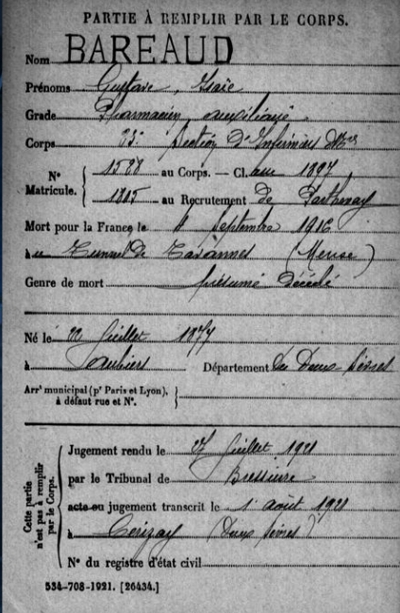 PARTIE À REMPLIR PAR LE CORPS.
Nom BAREAUD
Prénoms Gustave, Isaïe
Grade Pharmacien auxiliaire
Corps Section d'Infirmiers Mres
N° Matricule. { 1588 au Corps. — Cl. 1897
1815 au Recrutement de Parthenay
Mort pour la France le septembre 1916
à Tunnel de Tavannes (Meuse)
Genre de mort présumé décédé
Né le 22 Juillet 1877
à Département des Deux Sèvres
Arrt municipal (pr Paris et Lyon), à défaut rue et N°. }
Cette partie n'est pas à remplir par le Corps. {
Jugement rendu le 27 Juillet 1921
par le Tribunal de Bressuire
acte ou jugement transcrit le 1 août 1921
à Cerizay (Deux Sèvres)
N° du registre d'état civil
534-708-1921. [26434.]